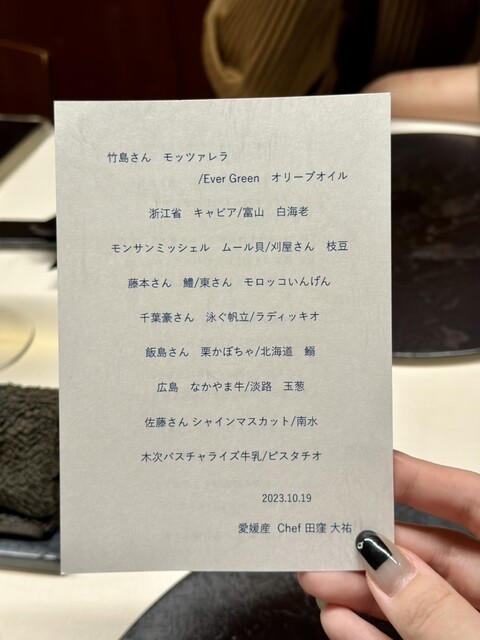 竹島さん　モッツァレラ
/Ever Green　オリーブオイル
浙江省　キャビア/富山　白海老
モンサンミッシェル　ムール貝/刈屋さん　枝豆
藤本さん　鱧/東さん　モロッコいんげん
千葉豪さん　泳ぐ帆立/ラディッキオ
飯島さん　栗かぼちゃ/北海道　鰯
広島　なかやま牛/淡路　玉葱
佐藤さん シャインマスカット/南水
木次パスチャライズ牛乳/ピスタチオ
2023.10.19
愛媛産 Chef 田窪 大祐